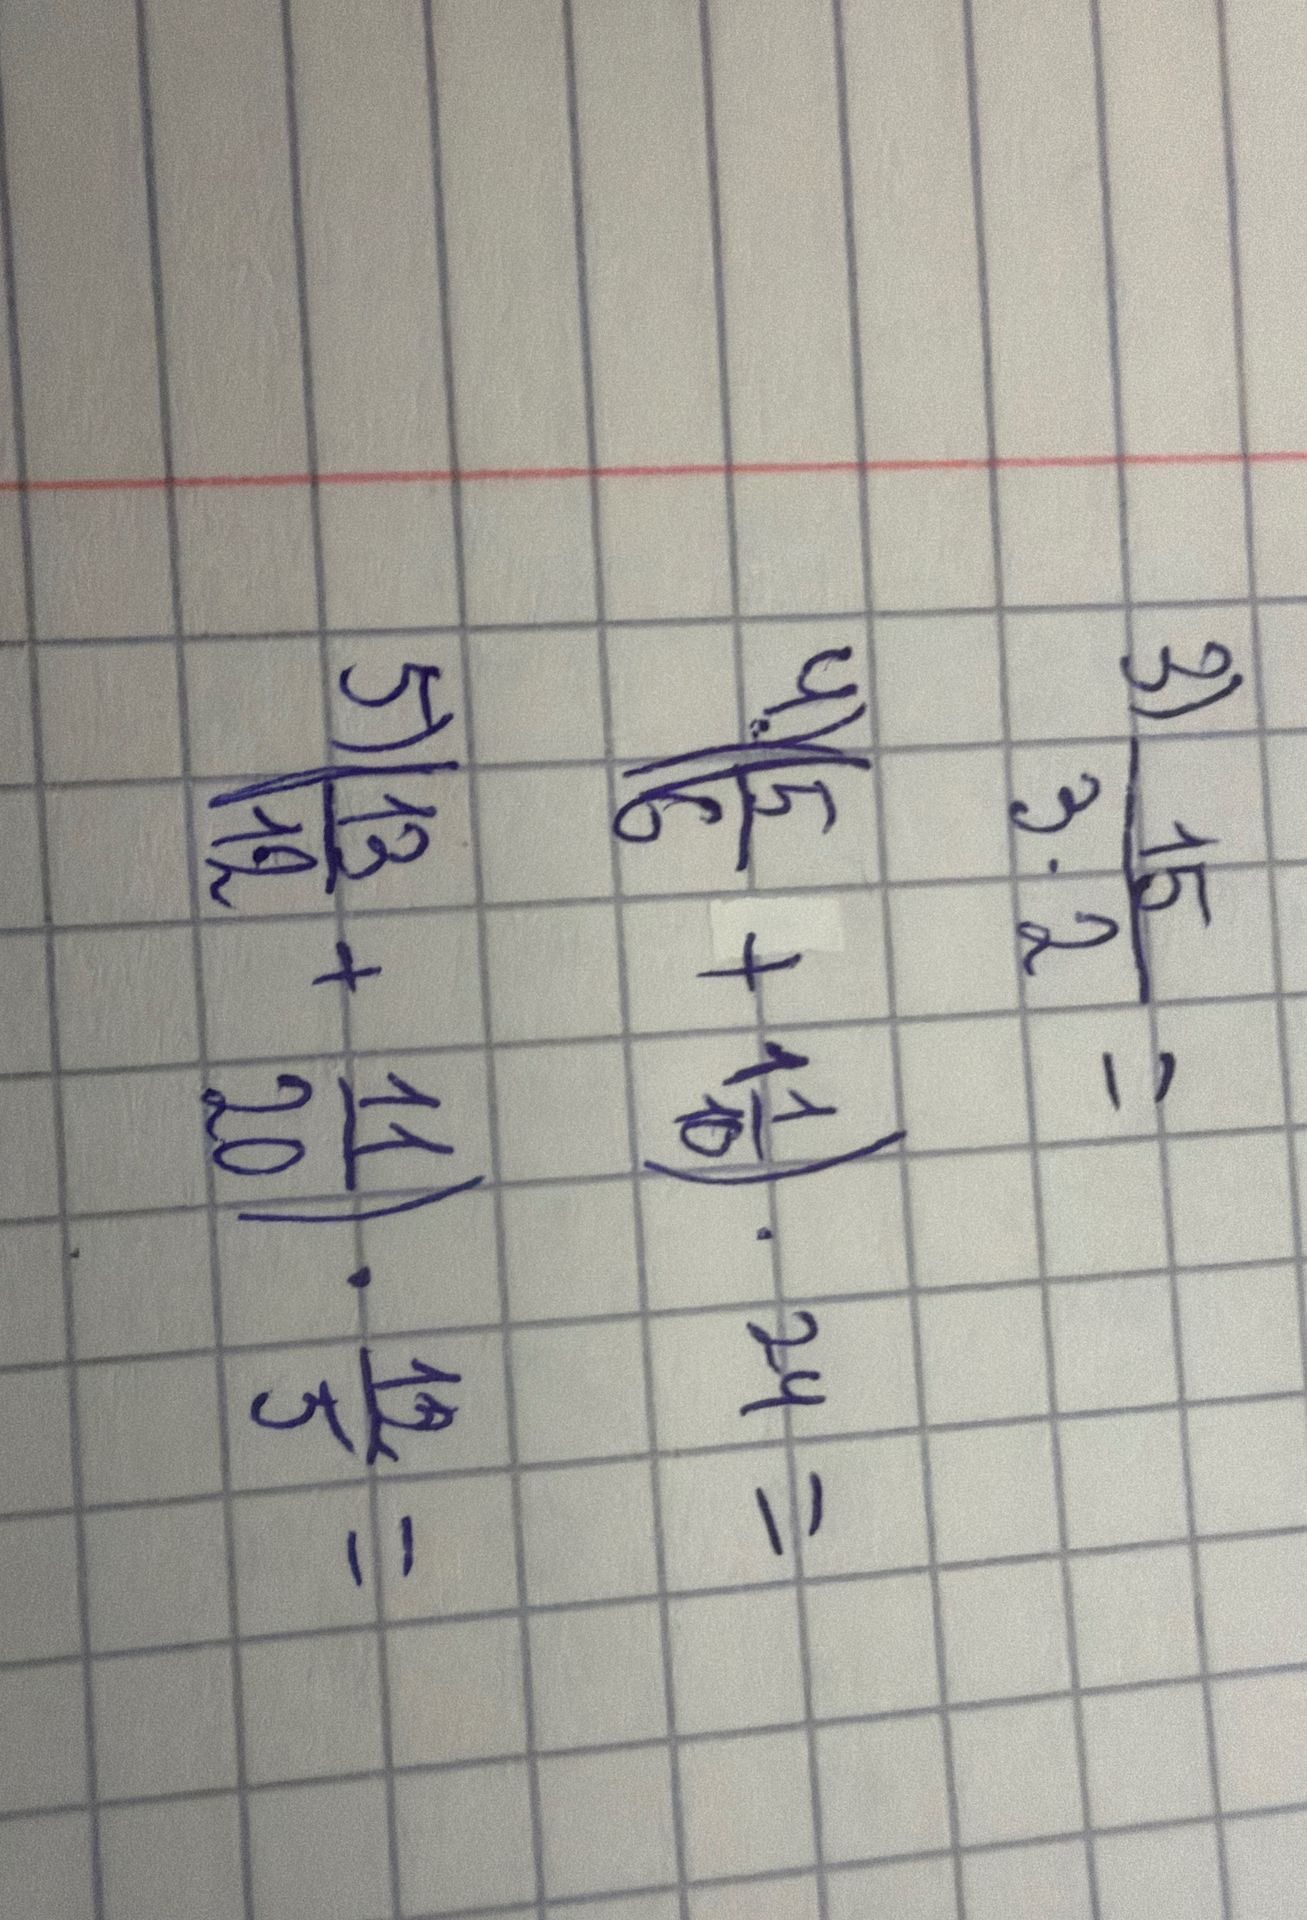 3) 15/(3·2) =
4) (5/6 + 1 1/10) · 24 =
5) (13/12 + 11/20) · 12/5 =